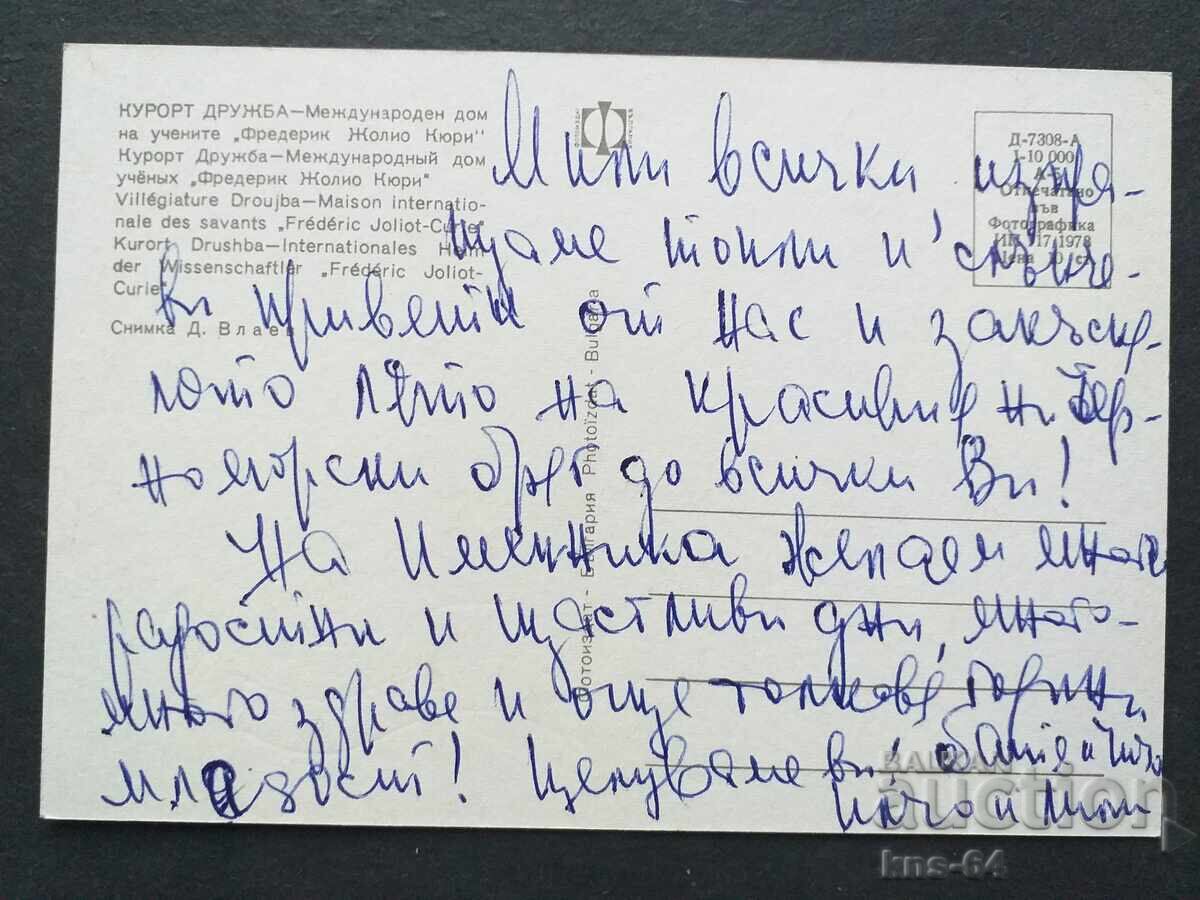 КУРОРТ ДРУЖБА—Международен дом
на учените „Фредерик Жолио Кюри"
Курорт Дружба—Международный дом
учёных „Фредерик Жолио Кюри"
Villégiature Droujba—Maison internatio-
nale des savants „Frédéric Joliot-Curie"
Kurort Drushba—Internationales Heim
der Wissenschaftler „Frédéric Joliot-
Curie"
Снимка Д. Влаев
Д-7308-А
1-10 000
А-6
Отпечатано
във
Фотографика
1978
Цена 10 ст.
Фотоиздат - България Photoizdat - Bulgaria
Мили всички, изпра-
щаме топли и слънче-
ви привети от нас и закъсня-
лото лято на красивия ни Чер-
номорски бряг до всички Ви!
На Именника желаем много
радостни и щастливи дни, много-
много здраве и още толкова години
младост! Целуваме Ви:
BALKAN
auction
kns-64